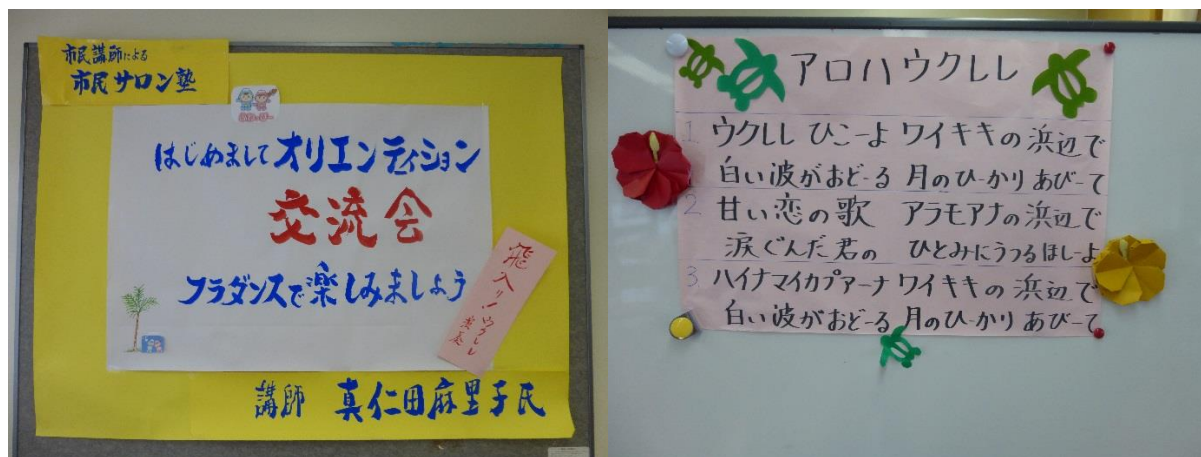 市民講師による
市民サロン塾
はじめましてオリエンティション
交流会
フラダンスで楽しみましょう
飛入り!ウクレレ
演奏
講師 真仁田麻里子氏
アロハウクレレ
1 ウクレレ ひこーよ ワイキキの浜辺で
白い波がおどーる 月のひーかり あびーて
2 甘い恋の歌 アラモアナの浜辺で
涙ぐんだ君の ひとみにうつるほしーよ
3 ハイナマイカプアーナ ワイキキの浜辺で
白い波がおどーる 月のひーかり あびーて